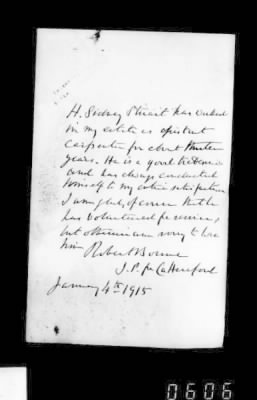 H. Sidney Stuart has worked
in my estate as assistant
carpenter for about thirteen
years. He is a good tradesman
and has always conducted
himself to my entire satisfaction
I am glad of course that he
has volunteered for service,
but otherwise am sorry to lose
him Robert Bourne
J.P. for Co Hereford
January 4th 1915
0606